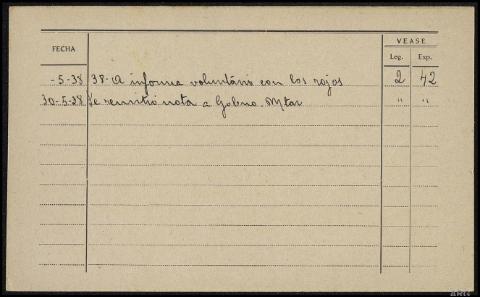 FECHA
VEASE
Leg. Exp.
-5-38 38-A informa voluntário con los rojos 2 42
30-5-38 Se remitió nota a Gobno. Mtar " "